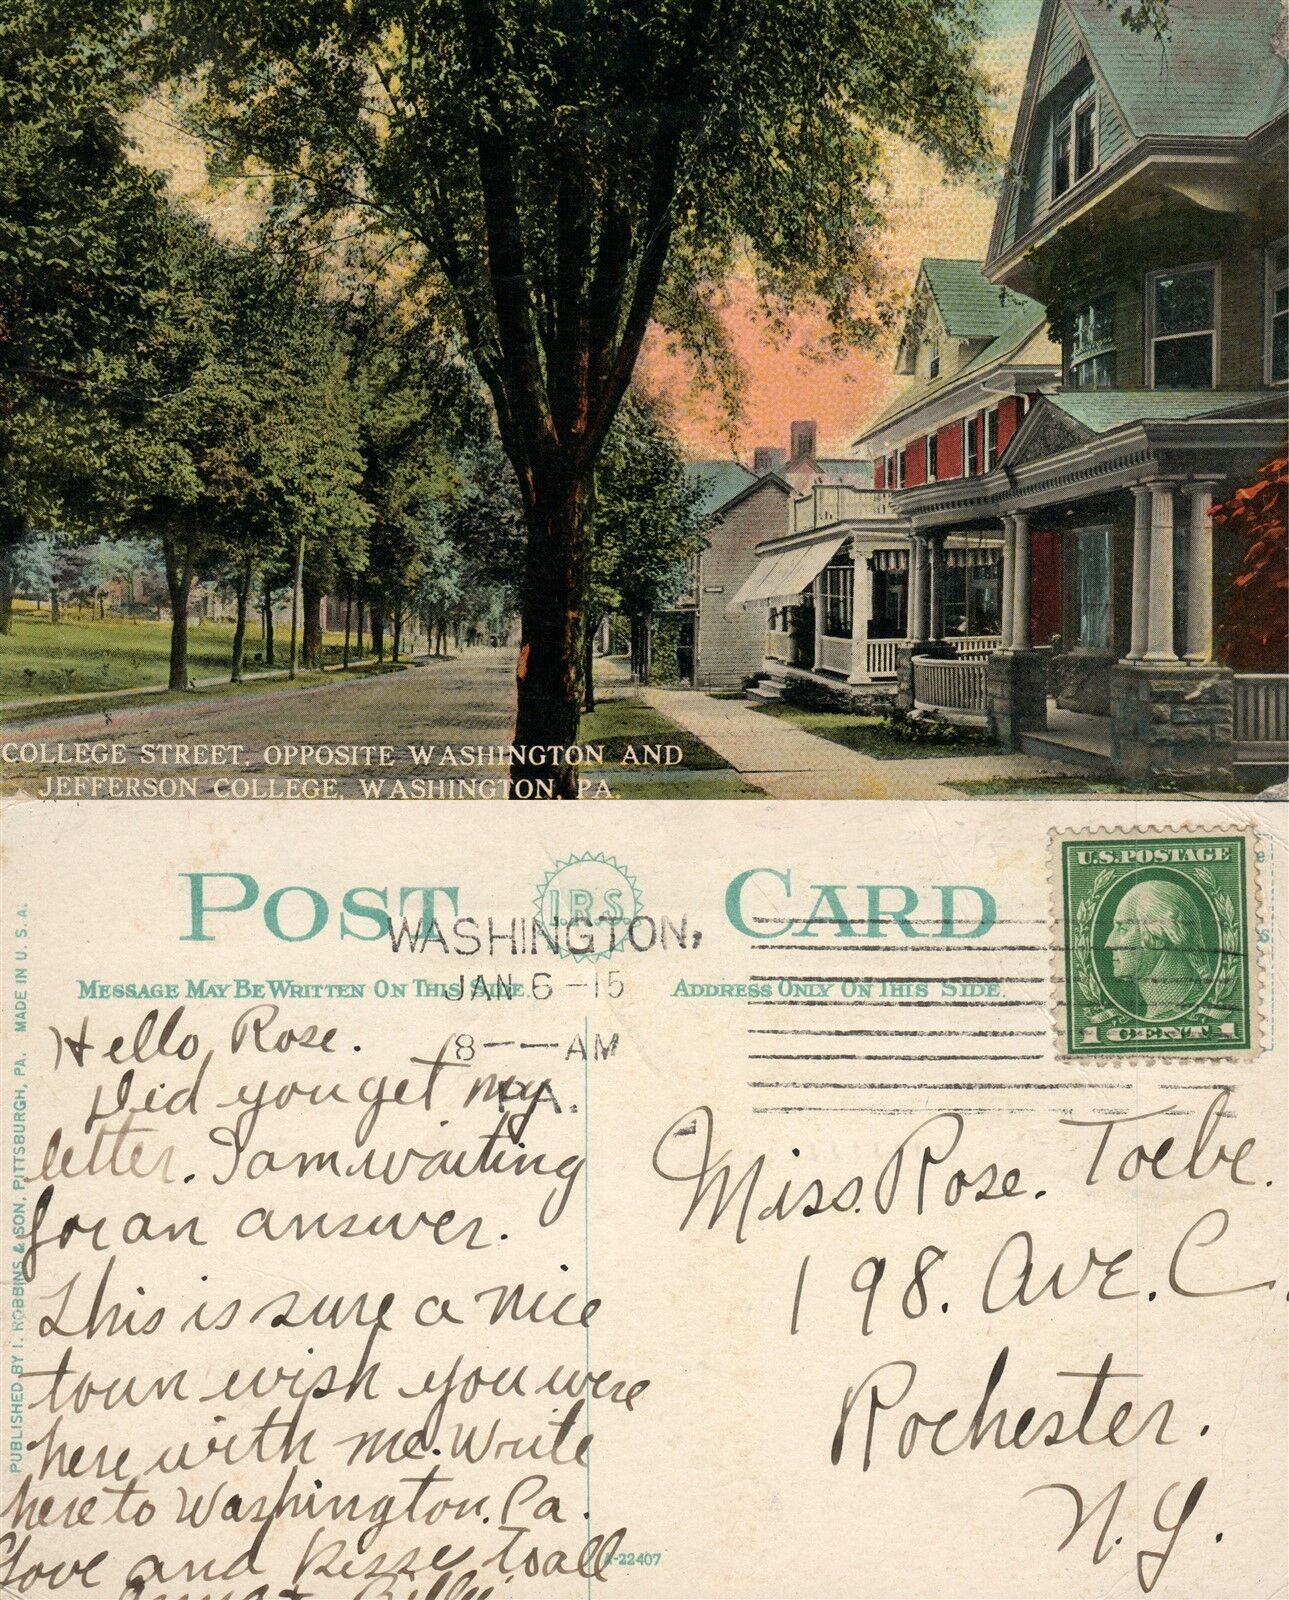 COLLEGE STREET, OPPOSITE WASHINGTON AND
JEFFERSON COLLEGE, WASHINGTON, PA.
POST CARD
I.R.S.
WASHINGTON,
JAN 6 -15
8 -- AM
PA.
U.S. POSTAGE
1
MESSAGE MAY BE WRITTEN ON THIS SIDE.
ADDRESS ONLY ON THIS SIDE.
PUBLISHED BY I. ROBBINS & SON, PITTSBURGH, PA. MADE IN U. S. A.
Hello, Rose.
Did you get my
letter. I am waiting
for an answer.
This is sure a nice
town wish you were
here with me. Write
here to Washington. Pa.
Love and Kisses to all
Billy
Miss. Rose. Toebe.
198. Ave. C
Rochester.
N. Y.
A-22407